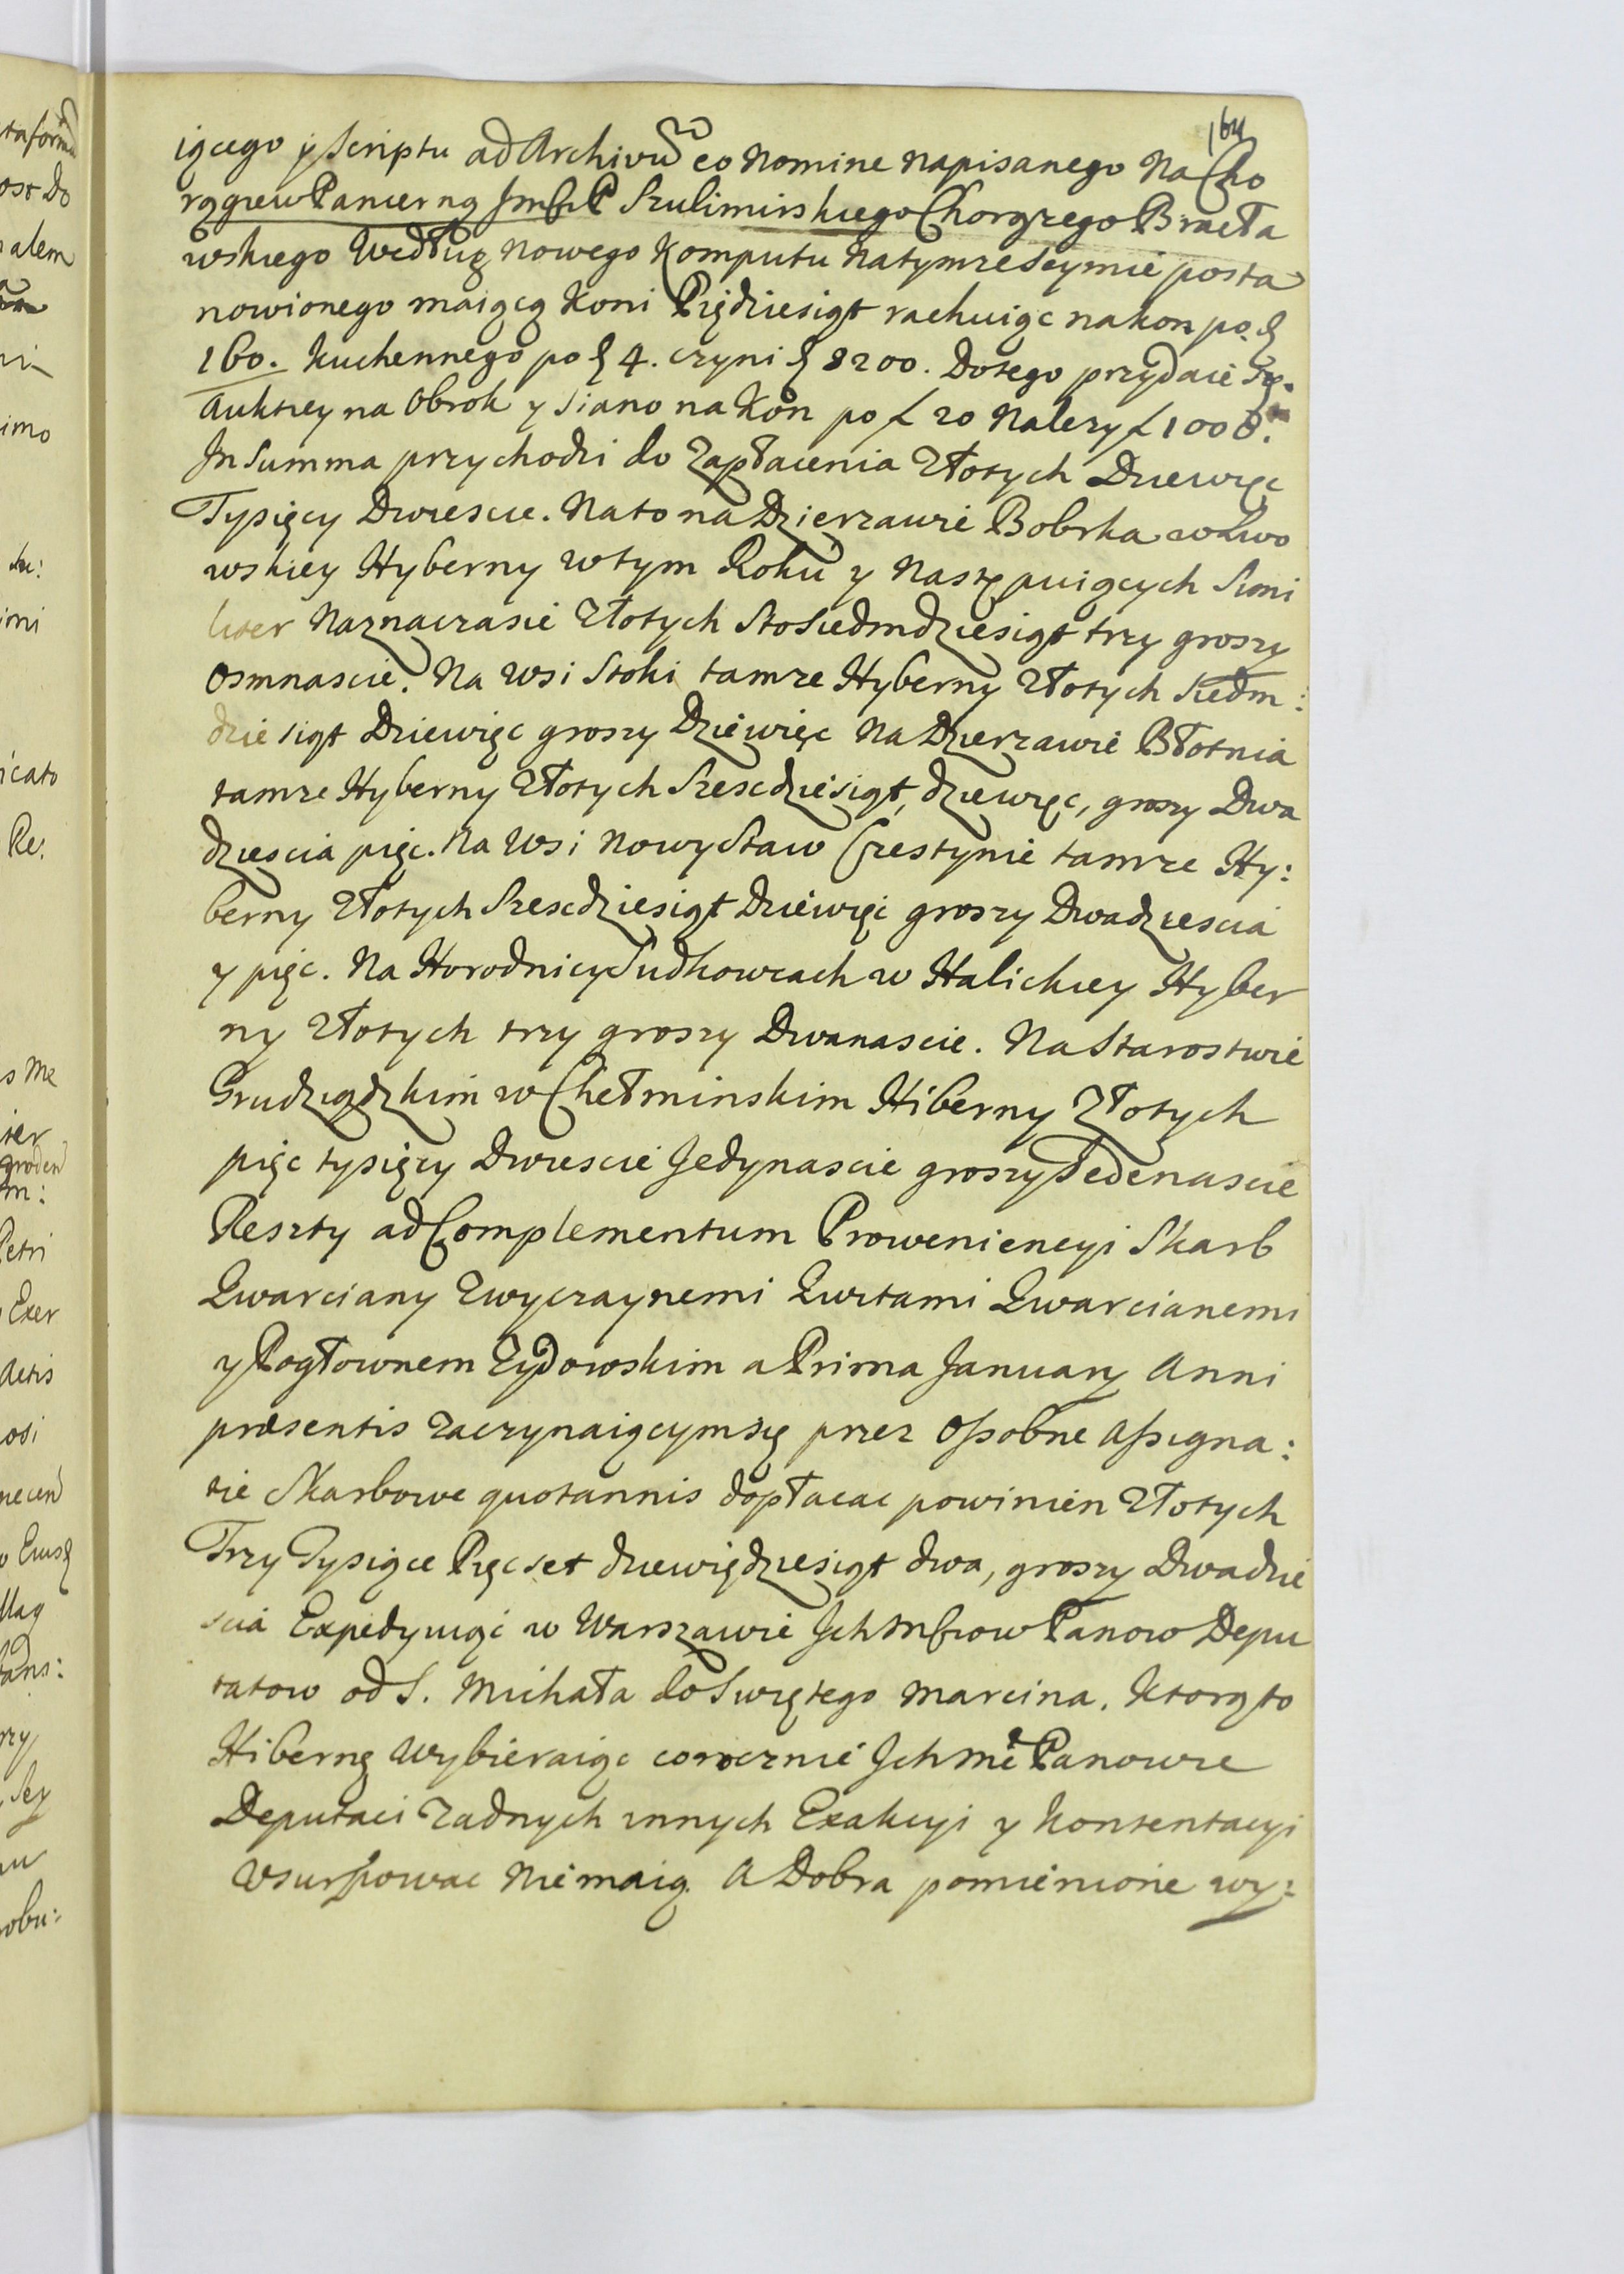 164
iącego y Scriptu ad Archivũ eo Nomine Napisanego Na Cho
rągiew Pancerną Jmści P Szulimirskiego Chorążego Bracła
wskiego Według Nowego Komputu Na tymze Seymie posta
nowionego maiącą Koni Pięćdziesiąt rachuiąc na kon po
160. kuchennego po 4. czyni 8200. Do tego przydaie Się
Aukcyey na Obrok y Siano na Kon po f 20 Nalezy f 1000.
In Summa przychodzi do Zapłacenia Złotych Dziewięc
Tysięcy Dwiescie. Na to na Dzierzawie Bobrka w Lwo
wskiey Hyberny w tym Roku y Następuiących Simi
liter Naznaczasie Złotych Sto Siedmdziesiąt trzy groszy
Osmnascie. Na Wsi Stoki tamze Hyberny Złotych Siedm:
dziesiąt Dziewięc groszy Dziewięc Na Dzierzawie Błotnia
tamze Hyberny Złotych Szescdziesiąt, dziewięc, groszy Dwa
dziescia pięc. Na Wsi Nowy Staw Czestynie tamze Hy:
berny Złotych Szescdziesiąt Dziewięc groszy Dwadziescia
y pięc. Na Horodnicy Sudkowcach w Halickiey Hyber
ny Złotych trzy groszy Dwanascie. Na Starostwie
Grudziądzkim w Chełminskim Hiberny Złotych
pięc tysięcy Dwiescie Jedynascie groszy Jedenascie
Reszty ad Complementum Proweniencyi Skarb
Kwarciany Zwyczaynemi Kwitami Kwarcianemi
y Pogłownem Zydowskim a Prima January Anni
præsentis Zaczynaiącymsię przez Osobne Assigna:
tie Skarbowe quotannis dopłacac powinien Złotych
Trzy Tysiące Pięcset dziewiędziesiąt dwa, groszy Dwadzie
scia Expedyuiąc w Warszawie Jch Mściow Panow Depu
tatow od S. Michała do Swiętego Marcina. Ktorąto
Hibernę Wybieraiąc corocznie Jch Mċ Panowie
Deputaci Zadnych innych Exakcyi y Kontentacyi
Vsurpowac Nie maią. A Dobra pomienione wy: